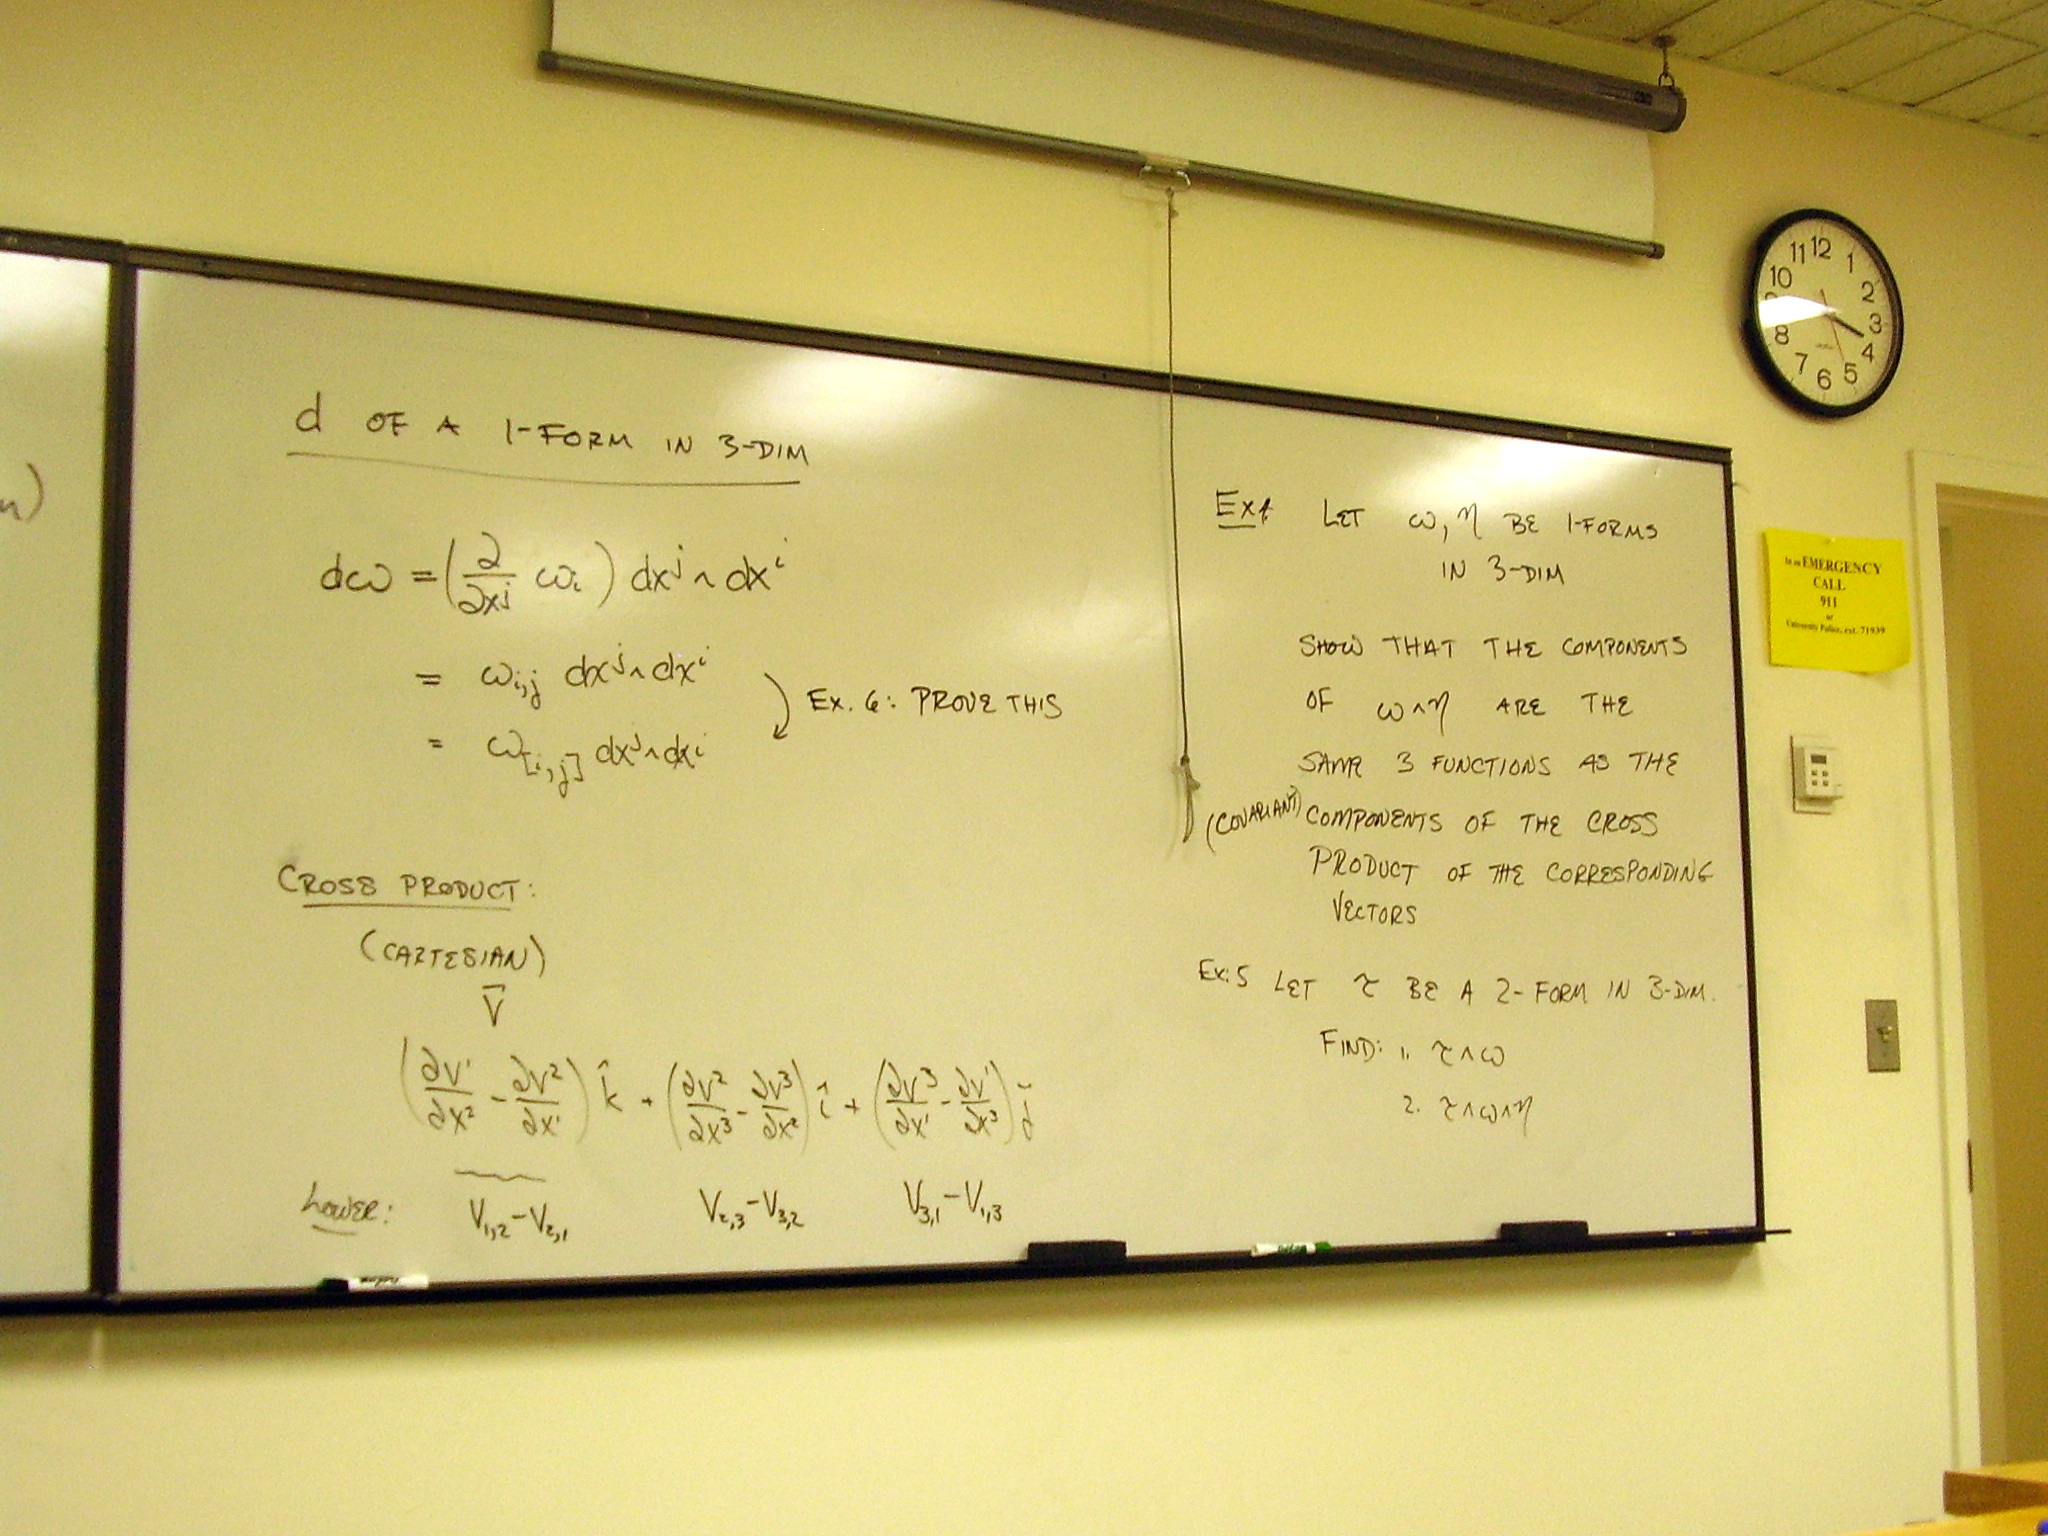 n)
d OF A 1-FORM IN 3-DIM
dω = (∂/∂xʲ ωᵢ) dxʲ ∧ dxⁱ
= ω_{i,j} dxʲ ∧ dxⁱ
= ω_{[i,j]} dxʲ ∧ dxⁱ
EX. 6: PROVE THIS
CROSS PRODUCT:
(CARTESIAN)
V̄
(∂V¹/∂x² - ∂V²/∂x¹) k̂ + (∂V²/∂x³ - ∂V³/∂x²) î + (∂V³/∂x¹ - ∂V¹/∂x³) ĵ
LOWER: V₁,₂ - V₂,₁ V₂,₃ - V₃,₂ V₃,₁ - V₁,₃
EX 4 LET ω, η BE 1-FORMS
IN 3-DIM
SHOW THAT THE COMPONENTS
OF ω ∧ η ARE THE
SAME 3 FUNCTIONS AS THE
(COVARIANT) COMPONENTS OF THE CROSS
PRODUCT OF THE CORRESPONDING
VECTORS
EX: 5 LET τ BE A 2-FORM IN 3-DIM.
FIND: 1. τ ∧ ω
2. τ ∧ ω ∧ η
12
1
2
3
4
5
6
7
8
10
11
In an EMERGENCY
CALL
911
or
University Police, ext. 71939